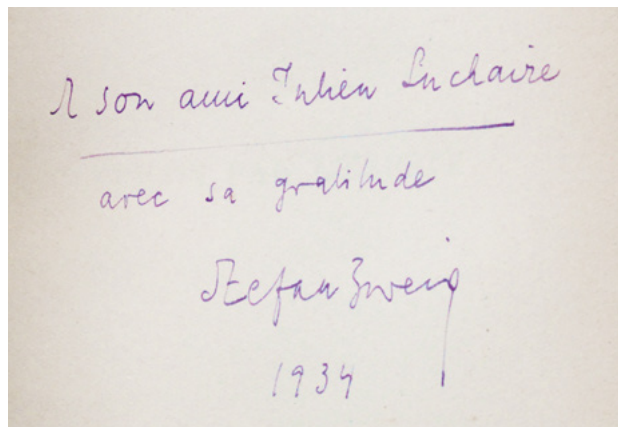 A son ami Julien Luchaire
avec sa gratitude
Stefan Zweig
1934